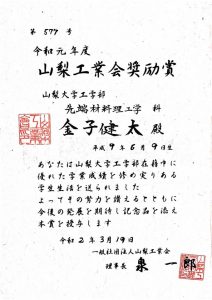 第577号
令和元年度
山梨工業会奨励賞
山梨大学工学部
先端材料理工学科
金子健太 殿
平成9年6月9日生
あなたは山梨大学工学部在籍中に
優れた学業成績を修め実りある
学生生活を送られました
よってその努力を讃えるとともに
今後の発展を期待し記念品を添え
本賞を授与します
令和2年3月19日
一般社団法人山梨工業会
理事長 泉 一郎